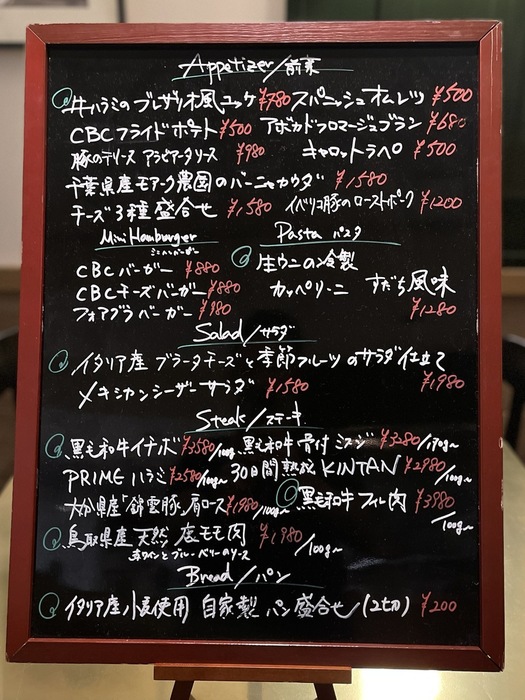 Appetizer/前菜
牛ハラミのブレザオラ風ユッケ ¥780 スパニッシュオムレツ ¥500
CBCフライドポテト ¥500 アボカドフロマージュブラン ¥680
豚のテリーヌ アラビアータソース ¥980 キャロットラペ ¥500
千葉県産モアーク農園のバーニャカウダ ¥1580
チーズ3種盛合せ ¥1,580 イベリコ豚のローストポーク ¥1200
Mini Hamburger Pasta パスタ
ミニハンバーガー
CBCバーガー ¥880 生ウニの冷製
CBCチーズバーガー ¥880 カッペリーニ すだち風味
フォアグラバーガー ¥980 ¥1280
Salad/サラダ
イタリア産 ブラータチーズと季節フルーツのサラダ仕立て
メキシカンシーザーサラダ ¥1580 ¥1980
Steak/ステーキ
黒毛和牛イチボ ¥3580/100g〜 黒毛和牛骨付 ミスジ ¥3280/170g〜
PRIMEハラミ ¥2580/100g〜 30日間熟成 KINTAN ¥2980/100g〜
大分県産「錦雲豚」肩ロース ¥1980/100g〜 黒毛和牛 フィレ肉 ¥3980
/100g〜
鳥取県産 天然 鹿モモ肉 ¥1980
赤ワインとブルーベリーのソース /100g〜
Bread/パン
イタリア産小麦使用 自家製 パン盛合せ(2切) ¥200